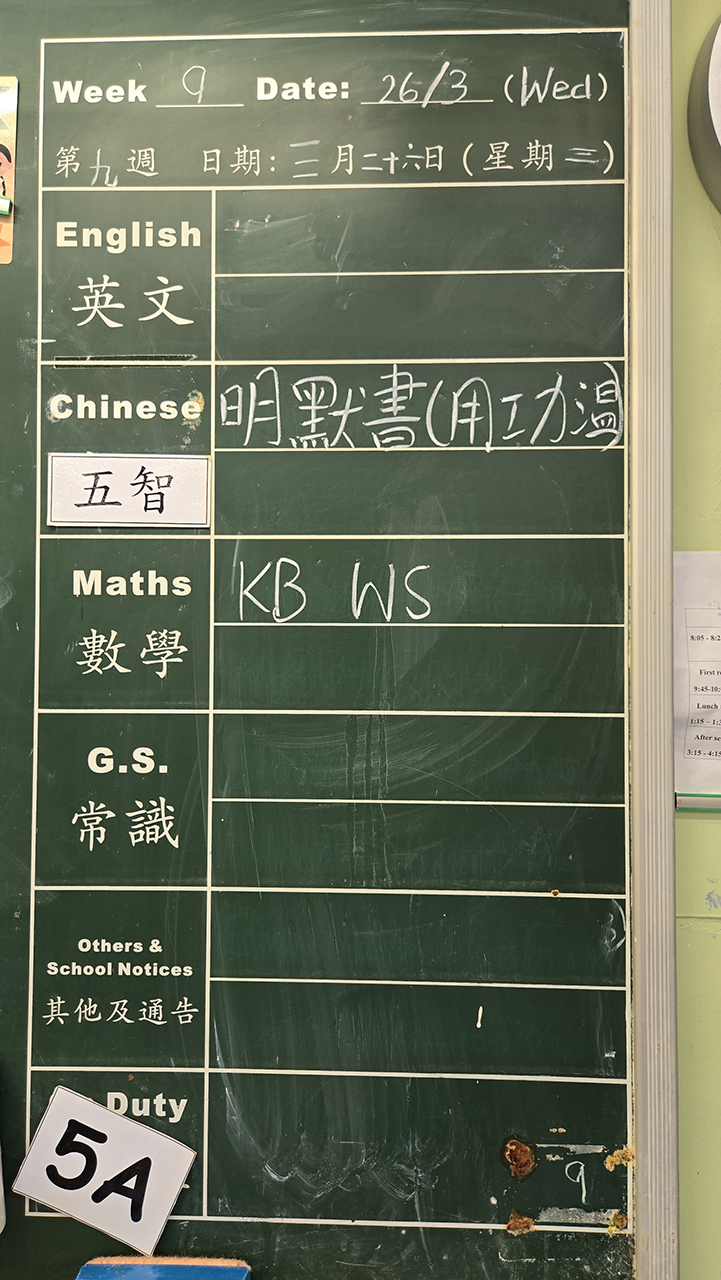 Week 9 Date: 26/3 (Wed)
第九週 日期:三月二十六日(星期三)
English
英文
Chinese 明默書(用功溫)
五智
Maths KB WS
數學
G.S.
常識
Others &
School Notices
其他及通告
Duty
5A
9
8:05 - 8:2
First r
9:45-10:
Lunch
1:15 – 1:3
After sc
3:15 - 4:15